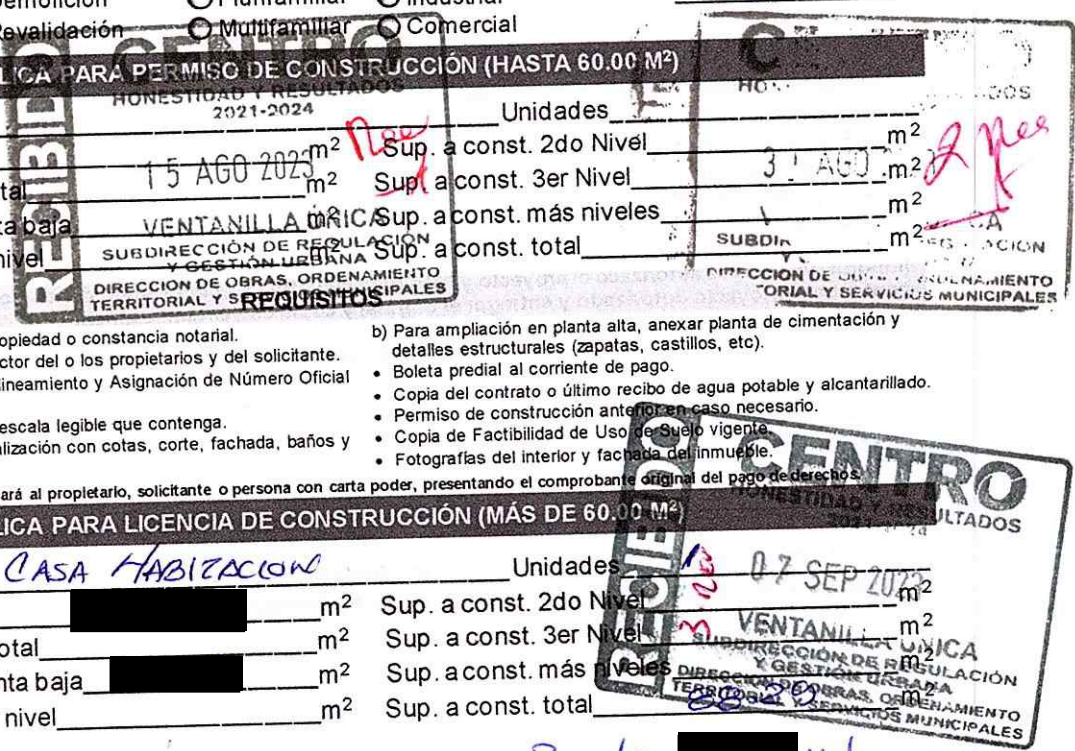 Demolición Plurifamiliar Industrial
Revalidación Multifamiliar Comercial
RECIBIDO
CENTRO
LICA PARA PERMISO DE CONSTRUCCIÓN (HASTA 60.00 M²)
HONESTIDAD Y RESULTADOS
2021-2024
Unidades
m² Sup. a const. 2do Nivel m²
15 AGO 2023
tal m² Sup. a const. 3er Nivel m²
ta baja m² Sup. a const. más niveles m²
VENTANILLA ÚNICA
nivel m² Sup. a const. total m²
SUBDIRECCIÓN DE REGULACIÓN
Y GESTIÓN URBANA
DIRECCIÓN DE OBRAS, ORDENAMIENTO
TERRITORIAL Y SERVICIOS MUNICIPALES
AGO
DIRECCIÓN DE OBRAS, ORDENAMIENTO
TORIAL Y SERVICIOS MUNICIPALES
REQUISITOS
opiedad o constancia notarial.
ctor del o los propietarios y del solicitante.
lineamiento y Asignación de Número Oficial
escala legible que contenga.
alización con cotas, corte, fachada, baños y
b) Para ampliación en planta alta, anexar planta de cimentación y
detalles estructurales (zapatas, castillos, etc).
• Boleta predial al corriente de pago.
• Copia del contrato o último recibo de agua potable y alcantarillado.
• Permiso de construcción anterior en caso necesario.
• Copia de Factibilidad de Uso de Suelo vigente.
• Fotografías del interior y fachada del inmueble.
ará al propietario, solicitante o persona con carta poder, presentando el comprobante original del pago de derechos.
LICA PARA LICENCIA DE CONSTRUCCIÓN (MÁS DE 60.00 M²)
RECIBIDO
CENTRO
HONESTIDAD Y RESULTADOS
CASA HABITACION Unidades 1
07 SEP 2023
m² Sup. a const. 2do Nivel m²
otal m² Sup. a const. 3er Nivel m²
nta baja m² Sup. a const. más niveles m²
nivel m² Sup. a const. total 88.20 m²
VENTANILLA ÚNICA
SUBDIRECCIÓN DE REGULACIÓN
Y GESTIÓN URBANA
DIRECCIÓN DE OBRAS, ORDENAMIENTO
TERRITORIAL Y SERVICIOS MUNICIPALES